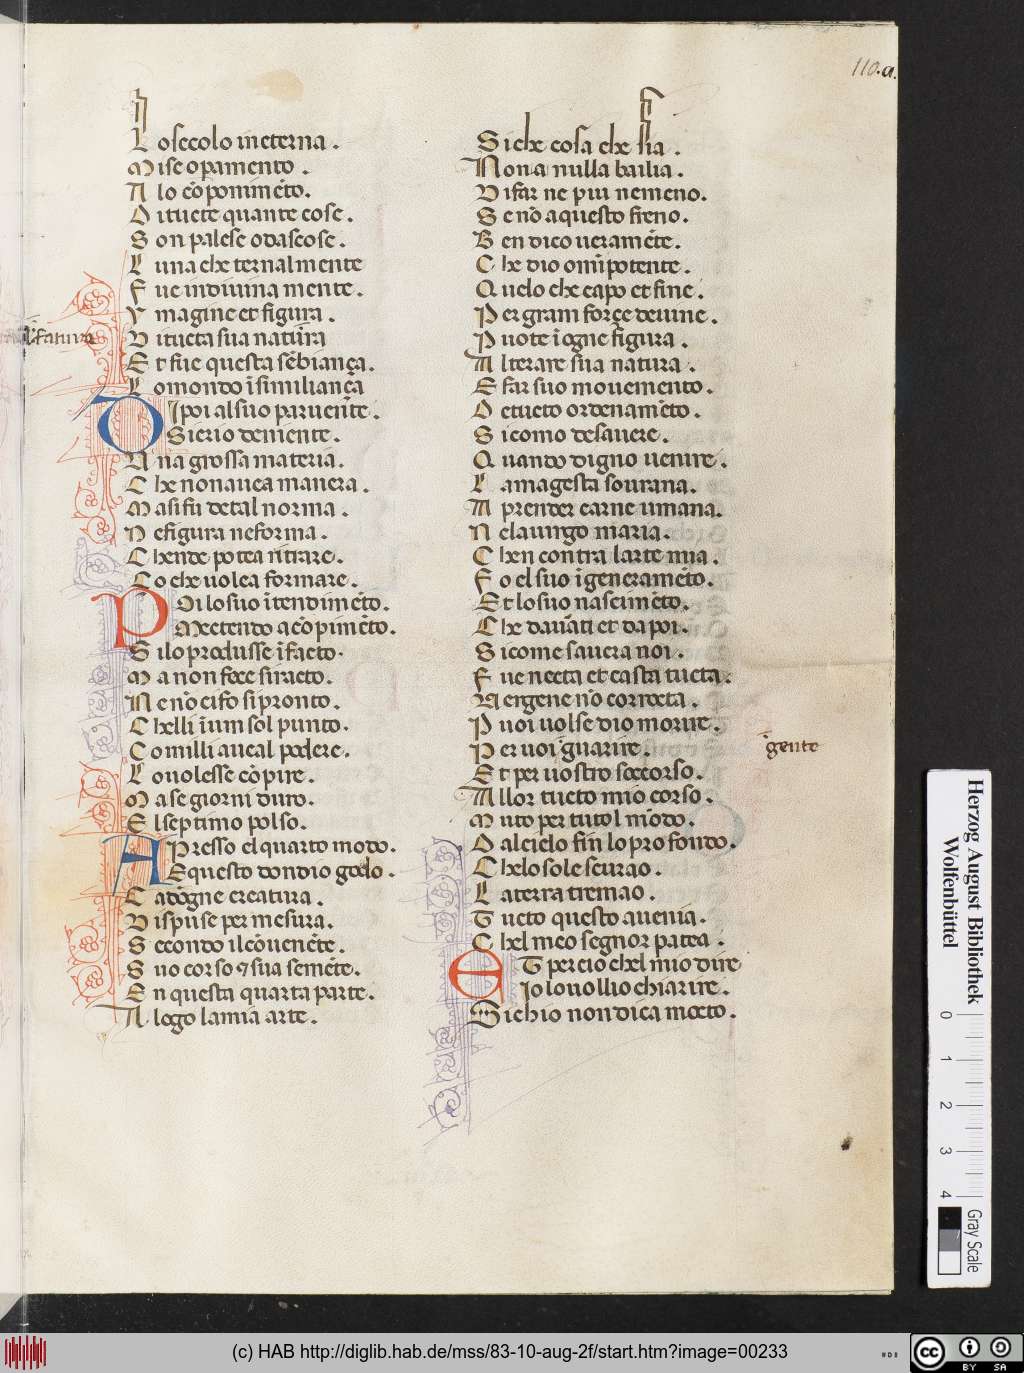 110.a.
L o secolo in eterna .
M ise opamento .
A lo cōponimēto.
D itucte quante cose .
S on palese odascose .
L una che ternalmente
F ue indiuina mente .
Y magine et figura .
D itucta sua natura
E t fue questa sēbiança .
L omondo ī similiança
D Ipoi alsuo paruente .
Sicrio deniente .
V na grossa materia .
C he nonauea manera .
M asifu detal norma .
N efigura neforma .
C hende potea ritrare .
C o che uolea formare .
P Oi losuo ītendimēto .
Mectendo acōpimēto .
S ilo produsse ī facto .
M a non fece siracto .
N e nō ci fo si pronto .
C helli īum sol punto .
C omilli aueal podere .
L ouolesse cōpire .
M ase giorni duro .
E lseptimo polso .
A Presso elquarto modo .
Equesto dondio godo .
C adōgne creatura .
D ispuse per mesura .
S econdo ilcōuenēte .
S uo corso ⁊ sua semēte .
E n questa quarta parte .
A logo lamia arte .
S i che cosa che sia .
N on a nulla bailia .
D i far ne piu nemeno .
S e nō aquesto freno .
B en dico ueramēte .
C he dio omīpotente .
Q uelo che capo et fine .
P er gram força deuine .
P uote ī ogne figura .
A lterare sua natura .
E far suo mouemento .
D etucto ordenamēto .
S icomo desauere .
Q uando digno uenire .
L amagesta sourana .
A prender carne umana .
N elauirgo maria .
C hen contra larte mia .
F o el suo īgeneramēto .
E t lo suo nascimēto .
C he dauāti et da poi .
S icome sauera noi .
F ue necta et casta tucta .
V ergene nō correcta .
P uoi uolse dio morire .
P er uoi guarire .
īgente
E t per uostro soccorso .
A llor tucto mio corso .
M uto per tutol mōdo .
D alcielo fin lo pro fondo .
C helo sole scurao .
L aterra tremao .
T ucto questo auenia .
C hel meo segnor patea .
E T percio chel mio dire
Io louollio chiarire .
S ichio non dica mocto .
Herzog August Bibliothek
Wolfenbüttel
0 1 2 3 4
Gray Scale
(c) HAB http://diglib.hab.de/mss/83-10-aug-2f/start.htm?image=00233
cc BY SA